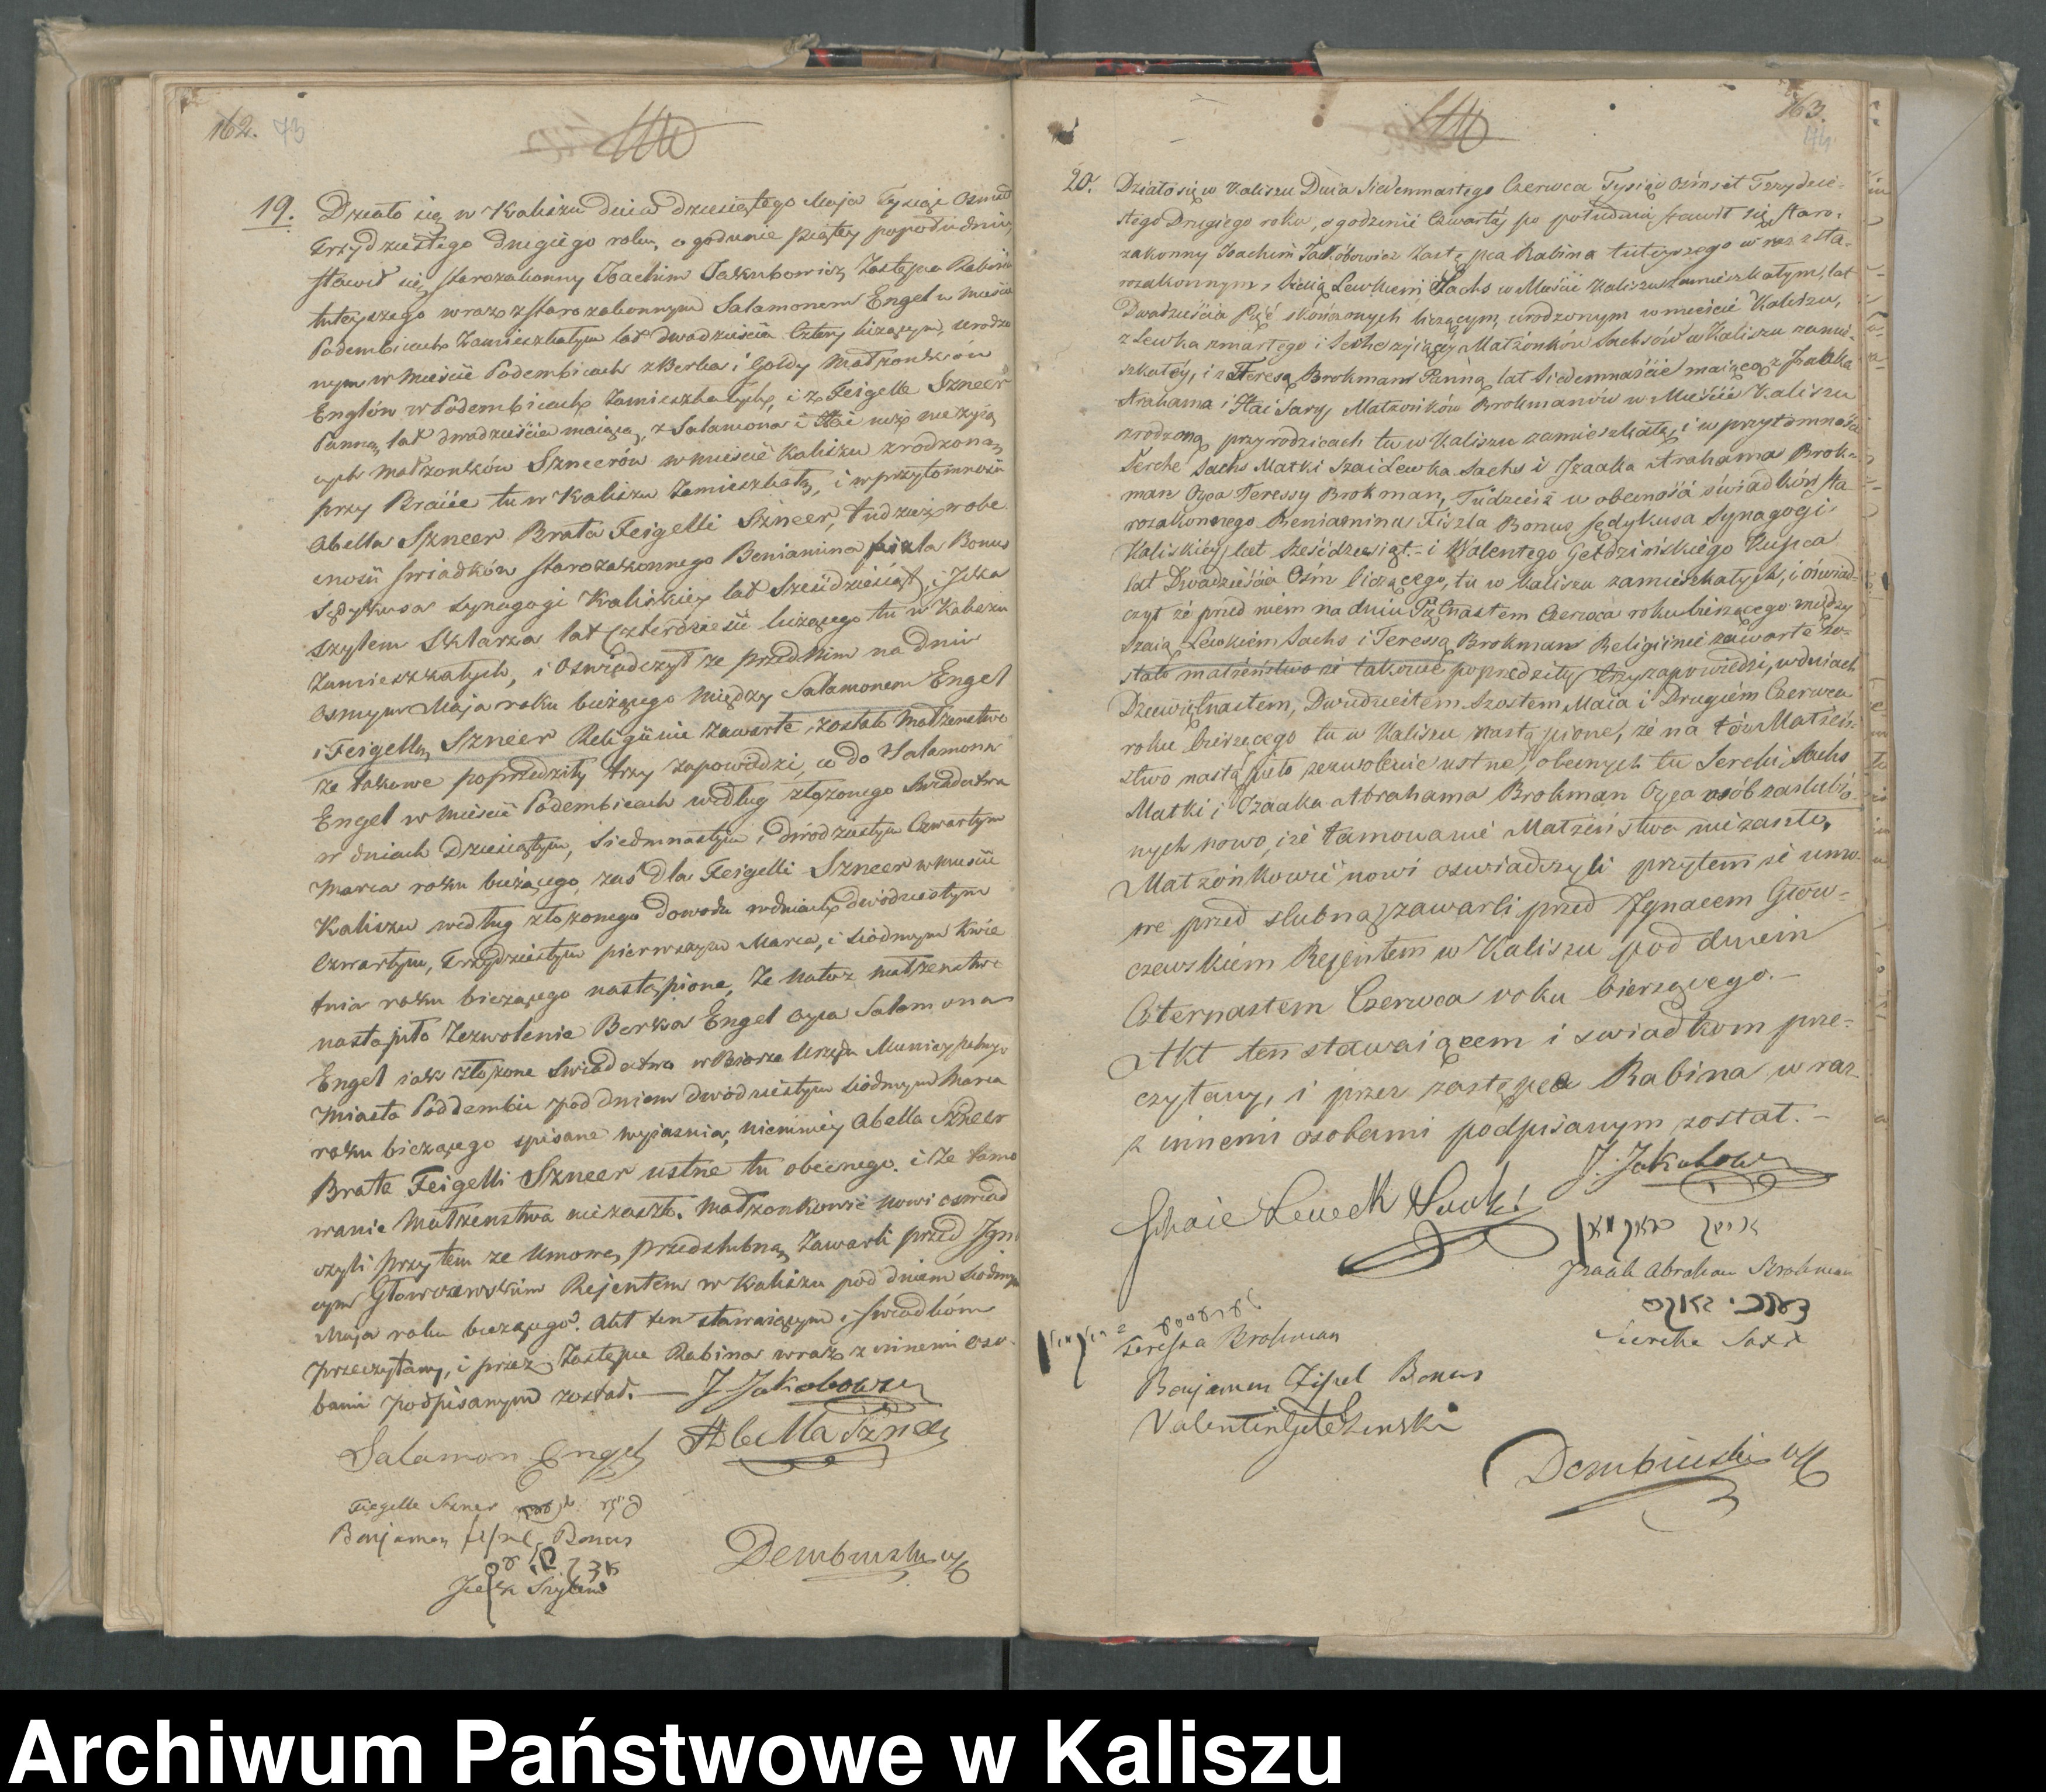 162. 73
19. Działo się w Kaliszu dnia dziesiątego Maja Tysiąc Osmset
Trzydziestego drugiego roku, o godzinie piątey popołudniu,
stawił się starozakonny Joachim Jakubowicz Zastępca Rabina
tuteyszego wraz z starozakonnym Salamonem Engel w Mieście
Podembicach Zamieszkałym lat dwadzieścia Cztery liczącym, urodzo
nym w Mieście Podembicach z Berka i Goldy Małżonków
Englów w Podembicach Zamieszkałych, i z Feigelle Szneer
Panną lat dwadzieścia maiącą, z Salamona i Hai już nieżyią
cych małżonków Szneerów w mieście Kaliszu zrodzoną
przy Bracie tu w Kaliszu Zamieszkałą, i w przytomności
Abella Szneer Brata Feigelli Szneer, tudzież w obe
cności świadków starozakonnego Beniamina Fiszla Bonus
Sędykusa synagogi Kaliskiey lat Sześćdziesiąt, i Icka
Szylem Szklarza lat Czterdzieści liczącego tu w Kaliszu
Zamieszkałych, i Oświadczył że przed nim na dniu
Osmym Maja roku bieżącego między Salamonem Engel
i Feigellą Szneer Religiinie Zawarte zostało Małżenstwo
że takowe poprzedziły trzy zapowiedzi, co do Salamona
Engel w mieście Podembicach według złożonego świadectwa
w dniach Dziesiątym, Siedmnastym i dwódziestym Czwartym
Marca roku bieżącego, zaś dla Feigelli Szneer w mieście
Kaliszu według złożonego dowodu w dniach dwódziestym
Czwartym, Trzydziestym pierwszym Marca, i Siódmym Kwie
tnia roku bieżącego nastąpione, Że na toż małżenstwo
nastąpiło Zezwolenie Berka Engel oyca Salamona
Engel iak złożone Świadectwo w Biorze Urzędu Municypalnego
Miasta Poddembic pod dniem dwódziestym siódmym Marca
roku bieżącego spisane wyiasnia, niemniey Abella Szneer
Brata Feigelli Szneer ustne tu obecnego. i że tamo
wanie Małżenstwa niezaszło. Małżonkowie nowi oswiad
czyli przytem że Umowę przedślubną Zawarli przed Ign
cym Głowczewskim Rejentem w Kaliszu pod dniem siódmym
Maja roku bieżącego. Akt ten stawaiącym i świadkóm
przeczytany, i przez Zastępce Rabina wraz z innemi oso-
bami podpisanym został. — J Jakobowicz
Salamon Engel Abella Szneer
Feigelle Szner
Benjamen Fiszel Bonus
Dembinski
Icek Szylem
163.
74
20. Działo się w Kaliszu Dnia Siedemnastego Czerwca Tysiąc Ośmset Trzydzie-
stego Drugiego roku, o godzinie Czwartéj po południu stawił się staro-
zakonny Joachim Jakóbowicz Zastępca Rabina tuteyszego w raz z sta-
rozakonnym, Szaią Lewkiem Sachs w Mieście Kaliszu zamieszkałym, lat
Dwadzieścia Pięć skończonych liczącym, urodzonym w mieście Kaliszu,
z Lewka zmarłego i Serche żyiącéy Małżonków Sachsów w Kaliszu zamie-
szkałéy, i z Teresą Brokman Panną lat Siedemnaście maiącą z Izaaka
Abrahama i Hai Sary Małżonków Brokmanów w Mieście Kaliszu
zrodzoną przy rodzicach tu w Kaliszu zamieszkałą, i w przytomności
Serche Sachs Matki Szai Lewka Sachs i Izaaka Abrahama Brok-
man Oyca Teressy Brokman, Tudzież w obecności świadków sta
rozakonnego Beniamina Fiszla Bonus Sędykusa Synagogi
Kaliskiéy lat Sześćdziesiąt - i Walentego Gełdzińskiego Kupca
lat Dwadzieścia Ośm liczącego, tu w Kaliszu zamieszkałych, i oświad-
czył że przed niem na dniu Piętnastem Czerwca roku bieżącego między
Szaią Lewkiem Sachs i Teressą Brokman Religiinie zawarte zo-
stało małżeństwo że takowe poprzedziły trzy zapowiedzi, w dniach
Dziewiętnastem, Dwudziestem Szóstem Maia i Drugiém Czerwca
roku bieżącego tu w Kaliszu nastąpione, że na tóż Małżeń-
stwo nastąpiło zezwolenie ustne, obecnych tu Serchi Sachs
Matki i Izaaka Abrahama Brokman Oyca osób zaślubio-
nych nowo, i że tamowanie Małżeństwa nie zaszło,
Małżonkowie nowi oswiadczyli przytem że umo-
wę przed ślubną zawarli przed Ignacem Głow-
czewskiem Rejentem w Kaliszu pod dniem
Czternastem Czerwca roku bierzącego. -
Akt ten stawaiącem i swiadkom prze-
czytany, i przez zastępca Rabina w raz
z innemi osobami podpisanym został. -
J. Jakobowicz
Schaie Leweck Sachs
אייזק בראקמאן
Izaak Abraham Brokman
Teressa Brokman
Serche Saxx
Benjamen Fiszel Bonus
Valentin Geldzinski
Dembinski
Archiwum Państwowe w Kaliszu